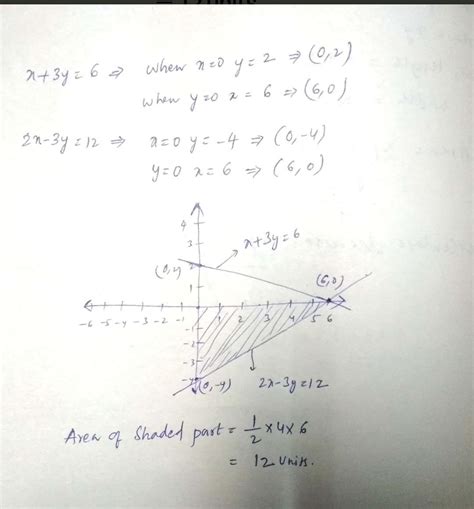 x+3y=6 ⇒ when x=0 y=2 ⇒ (0,2)
when y=0 x=6 ⇒ (6,0)
2x-3y=12 ⇒ x=0 y=-4 ⇒ (0,-4)
y=0 x=6 ⇒ (6,0)
4
3
x+3y=6
(0,2)
2
(6,0)
1
-6 -5 -4 -3 -2 -1 1 2 3 4 5 6
-1
-2
-3
-4
(0,-4)
2x-3y=12
Area of Shaded part = 1/2 x 4 x 6
= 12 Units.